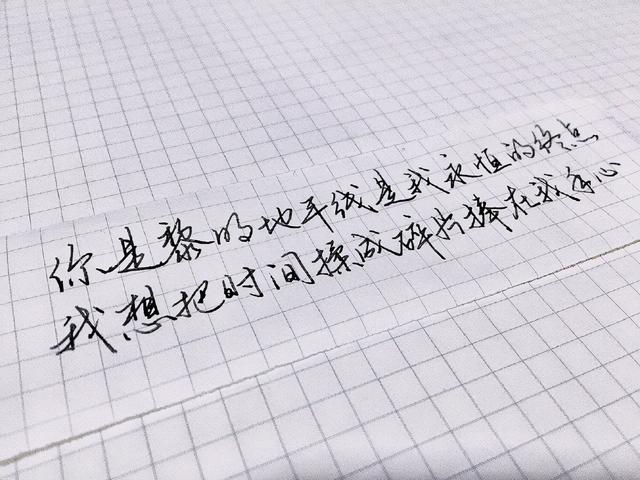 你是黎明地平线是我永恒的终点
我想把时间揉成碎片捧在我手心